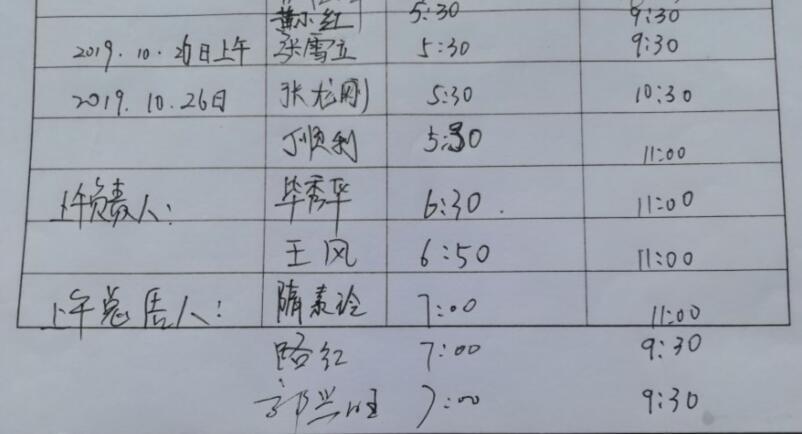 黄小红 5:30 9:30
2019.10.26日上午 张雪立 5:30 9:30
2019.10.26日 张龙刚 5:30 10:30
丁顺利 5:30 11:00
上午负责人: 毕秀华 6:30 11:00
王风 6:50 11:00
上午总负责人: 隋素玲 7:00 11:00
路红 7:00 9:30
郭兴旺 7:00 9:30